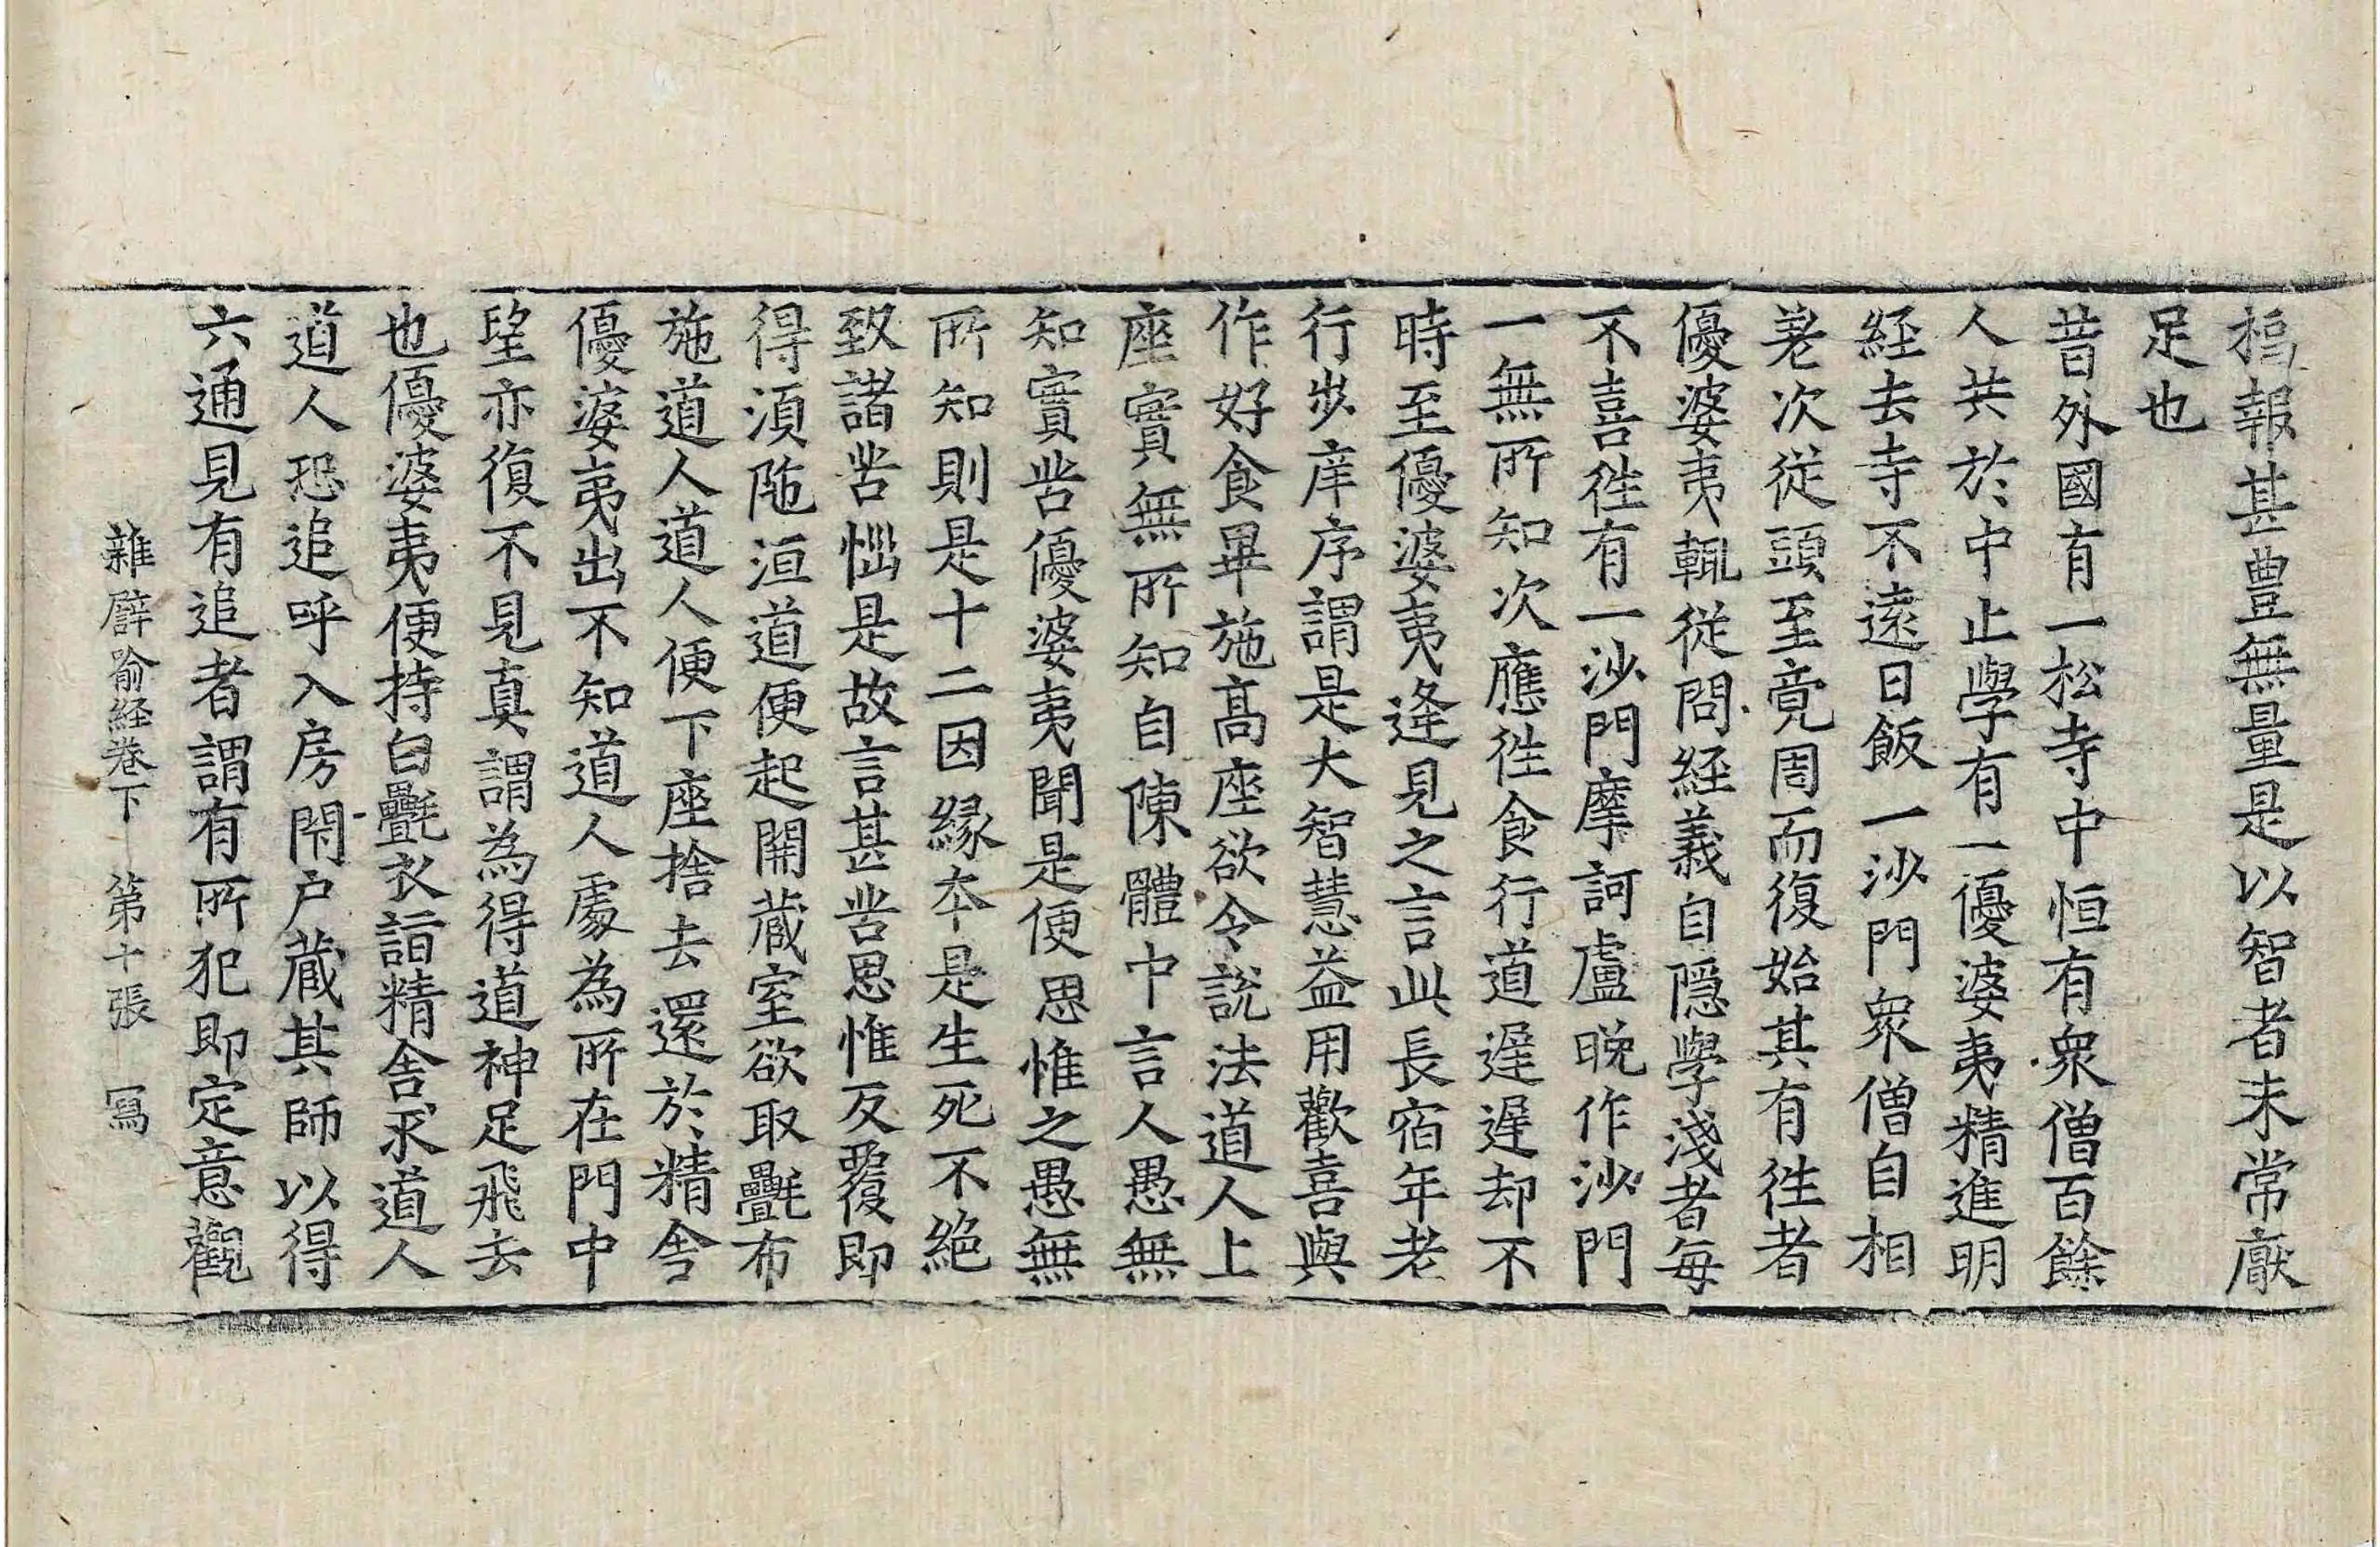 搗報甚豊無量是以智者未常厭
足也
昔外國有一松寺中恒有衆僧百餘
人共於中止學有一優婆夷精進明
経去寺不遠日飯一沙門衆僧自相
差次從頭至竟周而復始其有徃者
優婆夷輒從問経義自隱學淺者每
不喜徃有一沙門摩訶盧晚作沙門
一無所知次應徃食行道遲遲却不
時至優婆夷逢見之言此長宿年老
行步庠序謂是大智慧益用歡喜與
作好食畢施高座欲令說法道人上
座實無所知自陳體中言人愚無
知實苦優婆夷聞是便思惟之愚無
所知則是十二因縁夲是生死不絶
致諸苦惱是故言甚苦思惟反覆即
得湏陁洹道便起開藏室欲取㲲布
施道人道人便下座捨去還於精舎
優婆夷出不知道人處為所在門中
望亦復不見真謂為得道神足飛去
也優婆夷便持白㲲衣詣精舎求道人
道人恐追呼入房閇户藏其師以得
六通見有追者謂有所犯即定意觀
雜譬喻経卷下　第十張　冩